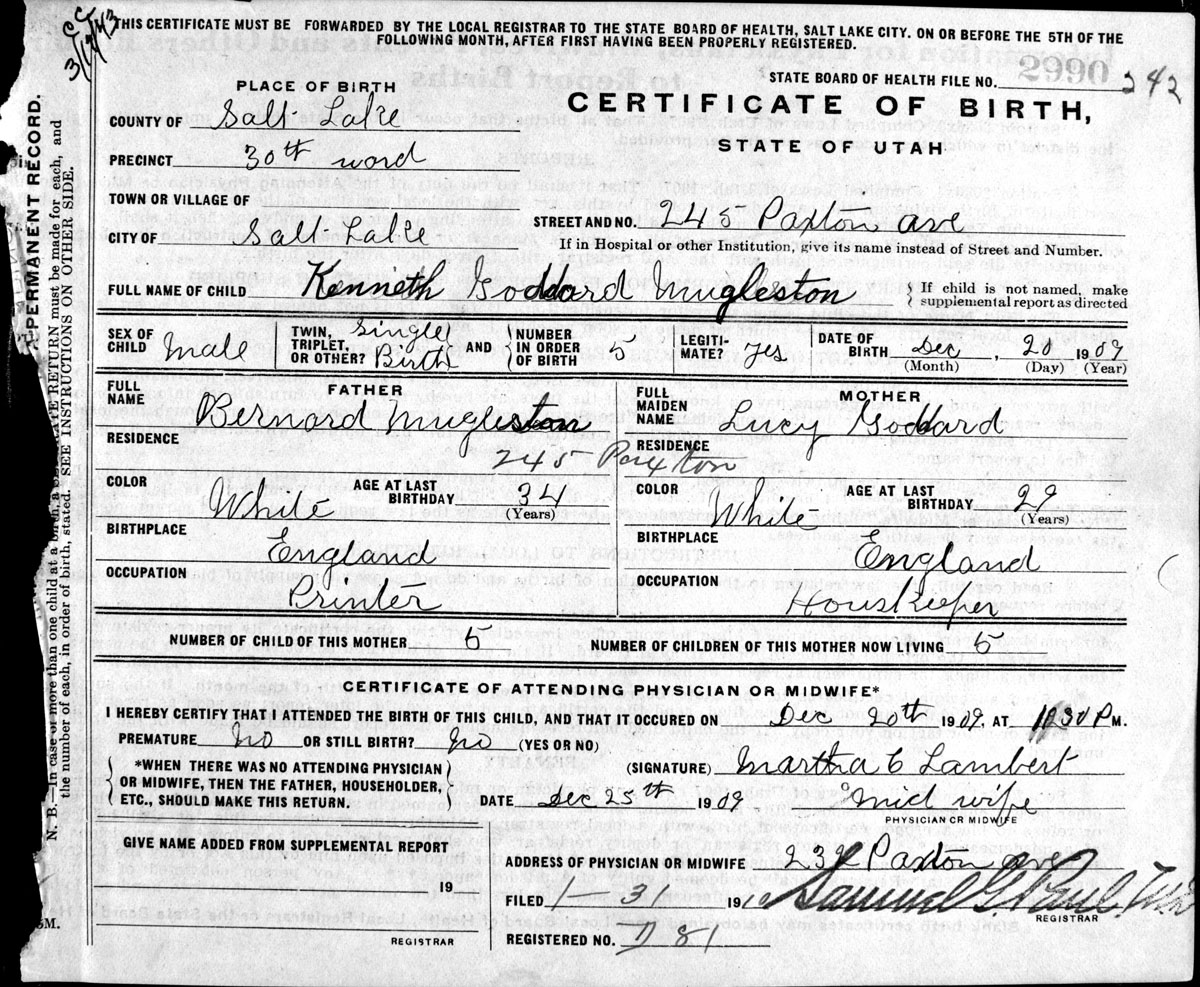 3/17/43
THIS CERTIFICATE MUST BE FORWARDED BY THE LOCAL REGISTRAR TO THE STATE BOARD OF HEALTH, SALT LAKE CITY. ON OR BEFORE THE 5TH OF THE
FOLLOWING MONTH, AFTER FIRST HAVING BEEN PROPERLY REGISTERED.
STATE BOARD OF HEALTH FILE NO. 2990 242
PLACE OF BIRTH
CERTIFICATE OF BIRTH,
STATE OF UTAH
COUNTY OF Salt Lake
PRECINCT 30th ward
TOWN OR VILLAGE OF
STREET AND NO. 245 Paxton ave
CITY OF Salt Lake
If in Hospital or other Institution, give its name instead of Street and Number.
FULL NAME OF CHILD Kenneth Goddard Mugleston
If child is not named, make
supplemental report as directed
SEX OF CHILD Male
TWIN, TRIPLET, OR OTHER? Single Birth AND NUMBER IN ORDER OF BIRTH 5
LEGITIMATE? yes
DATE OF BIRTH Dec, 20 1909
(Month) (Day) (Year)
FATHER
FULL NAME Bernard Mugleston
MOTHER
FULL MAIDEN NAME Lucy Goddard
RESIDENCE 245 Paxton RESIDENCE
COLOR White AGE AT LAST BIRTHDAY 34 (Years)
COLOR White AGE AT LAST BIRTHDAY 29 (Years)
BIRTHPLACE England
BIRTHPLACE England
OCCUPATION Printer
OCCUPATION Houskeeper
NUMBER OF CHILD OF THIS MOTHER 5 NUMBER OF CHILDREN OF THIS MOTHER NOW LIVING 5
CERTIFICATE OF ATTENDING PHYSICIAN OR MIDWIFE*
I HEREBY CERTIFY THAT I ATTENDED THE BIRTH OF THIS CHILD, AND THAT IT OCCURED ON Dec 20th 1909, AT 11 30 P M.
PREMATURE No OR STILL BIRTH? No (YES OR NO)
*WHEN THERE WAS NO ATTENDING PHYSICIAN
OR MIDWIFE, THEN THE FATHER, HOUSEHOLDER,
ETC., SHOULD MAKE THIS RETURN.
(SIGNATURE) Martha C Lambert
DATE Dec 25th 1909 Mid wife
PHYSICIAN OR MIDWIFE
GIVE NAME ADDED FROM SUPPLEMENTAL REPORT
19
REGISTRAR
ADDRESS OF PHYSICIAN OR MIDWIFE 232 Paxton ave
FILED 1-31 1910 Samuel G. Paul. M.D.
REGISTRAR
REGISTERED NO. D 81
PERMANENT RECORD.
N. B.—In case of more than one child at a birth, a SEPARATE RETURN must be made for each, and
the number of each, in order of birth, stated. SEE INSTRUCTIONS ON OTHER SIDE.